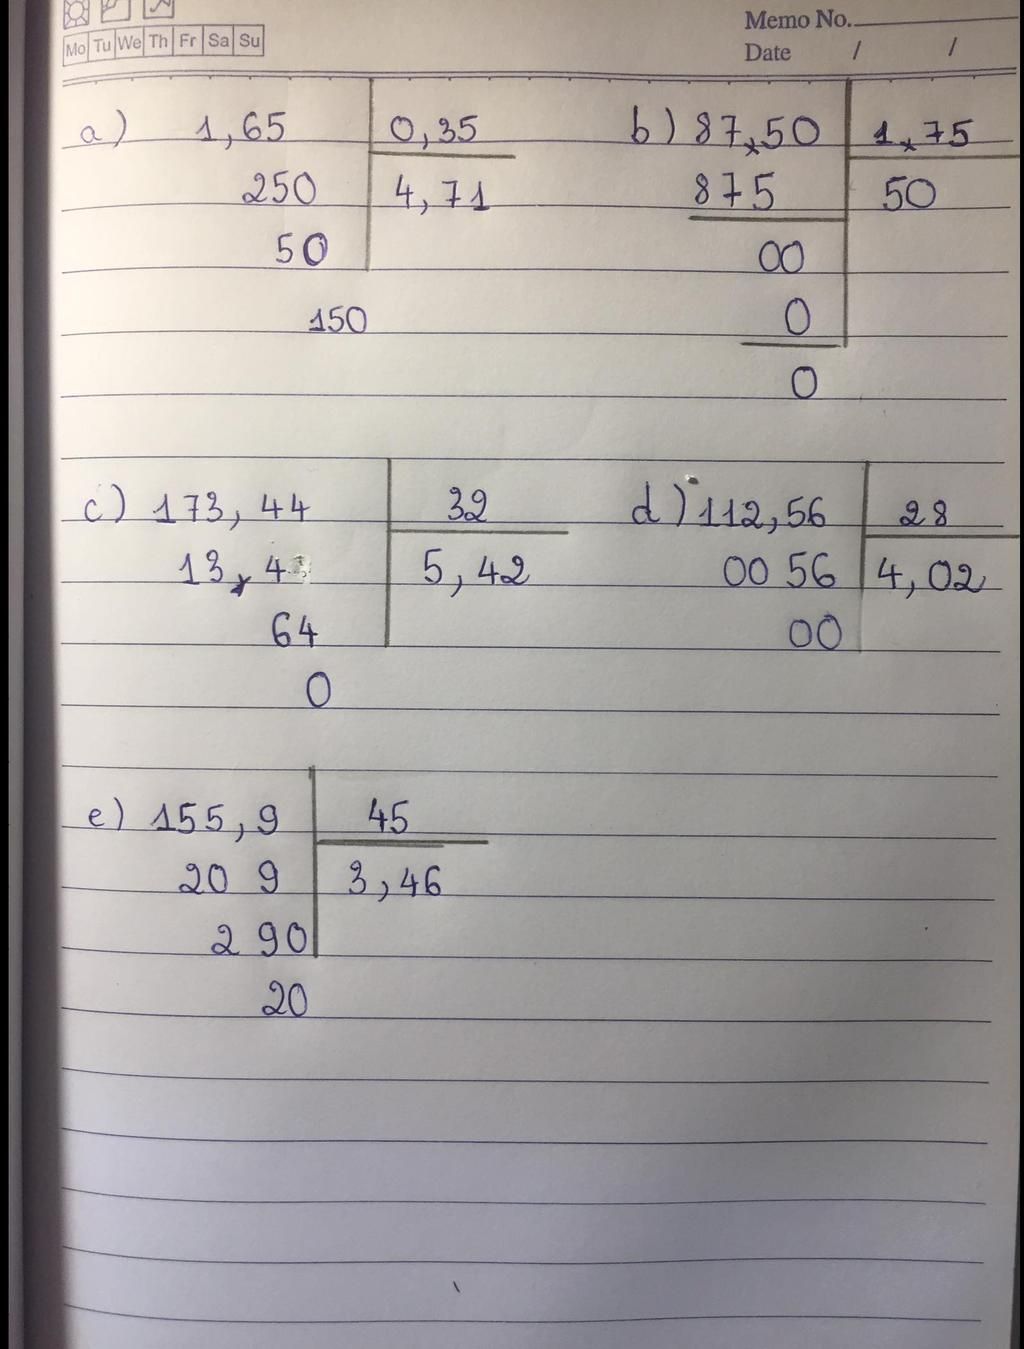 Memo No.
Mo Tu We Th Fr Sa Su
Date / /
a) 1,65 0,35
250 4,71
50
150
b) 87,50 1,75
875 50
00
0
0
c) 173,44 32
13,4 5,42
64
0
d) 112,56 28
00 56 4,02
00
e) 155,9 45
20 9 3,46
2 90
20